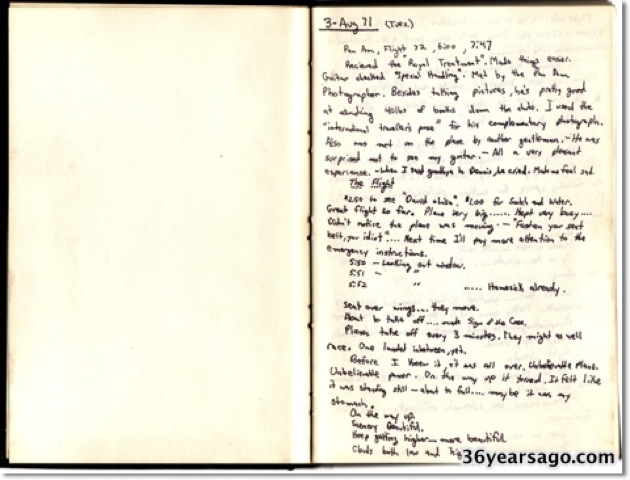 3-Aug 71 (Tues)
Pan Am, Flight 22, 6:00, 747
Recieved the "Royal Treatment". Made things easier.
Guitar checked "Special Handling". Met by the Pan Am
Photographer. Besides taking pictures, he's pretty good
at 40lbs of books down the chute. I used the
"international traveller's pose" for his complementary photograph.
Also was met on the plane by another gentleman. - He was
surprised not to see my guitar. - All a very pleasant
experience. - When I said goodbye to Dennis, he cried. Made me feel sad.
The Flight
$2.50 to see "David". $1.00 for Scotch and Water.
Great flight so far. Plane very big...... Kept very busy.....
Didn't notice the plane was moving - "Fasten your seat
belt, you idiot".... Next time I'll pay more attention to the
emergency instructions.
5:50 - Looking out window.
5:51 - "
5:52 " ..... Homesick already.
Seat over wings.... they move.
About to take off.... made Sign of the Cross.
Planes take off every 3 minutes. They might as well
race. One landed inbetween, yet.
Before I knew it it was all over. Unbelievable Plane.
Unbelievable power. On the way up it turned. It felt like
it was standing still - about to fall.... maybe it was my
stomach.
On the way up.
Scenery Beautiful.
Keep getting higher - more beautiful
Clouds both low and high
36yearsago.com